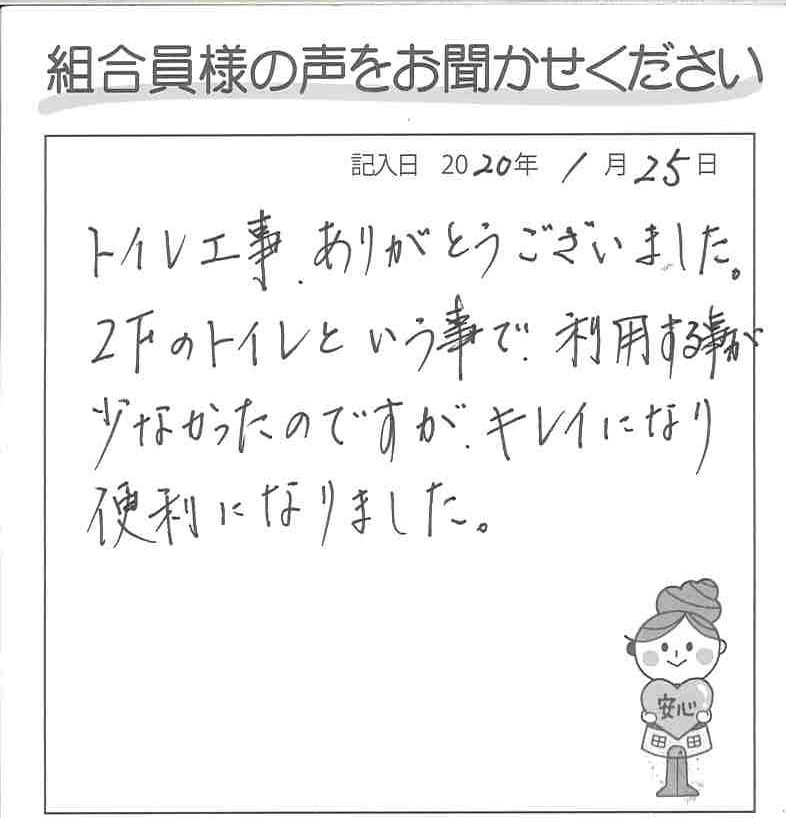 組合員様の声をお聞かせください
記入日 2020年 1月25日
トイレ工事、ありがとうございました。
2Fのトイレという事で、利用する事が
少なかったのですが、キレイになり
便利になりました。
安心